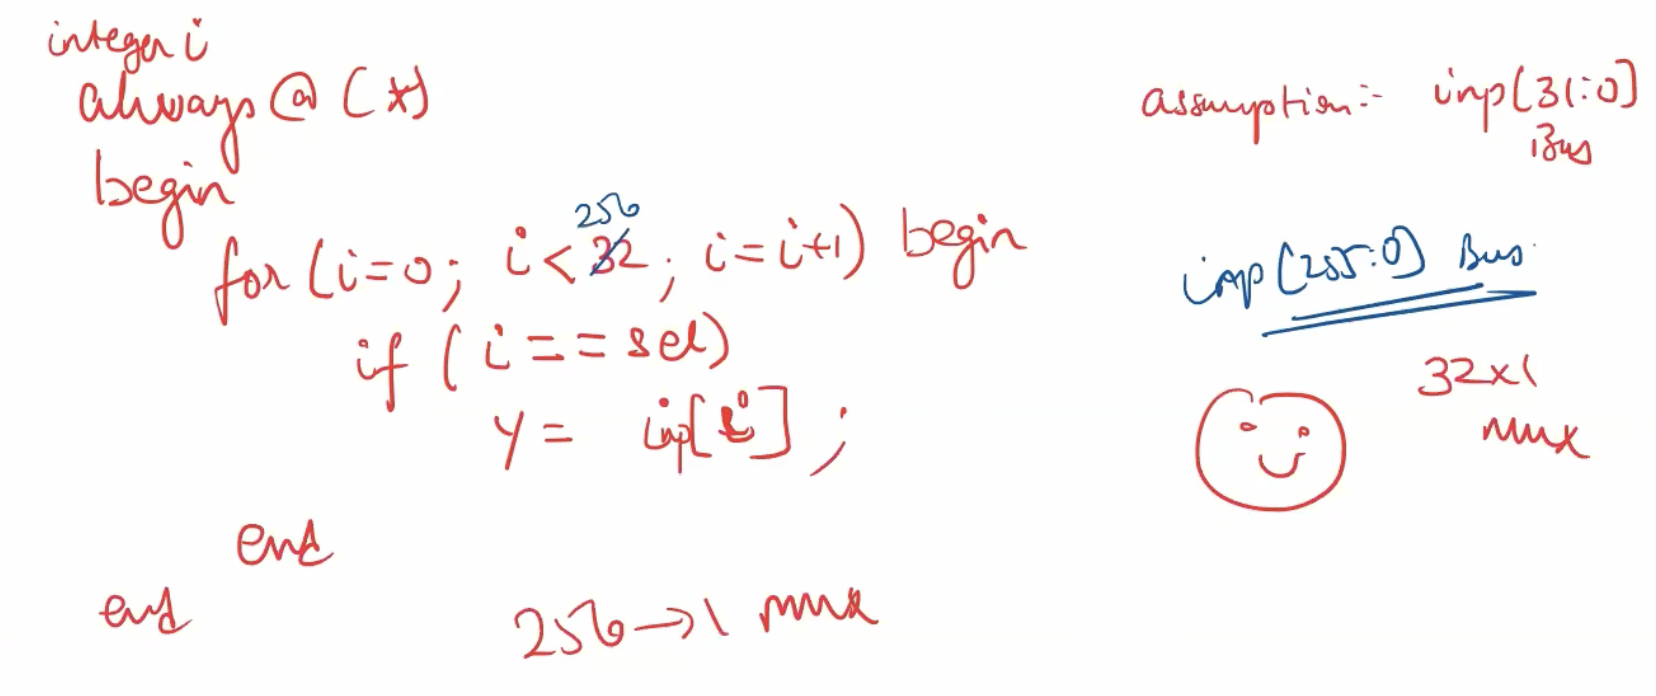 integer i
always @ (*)
begin
for (i=0; i<32; i=i+1) begin
256
if (i==sel)
y = inp[i];
end
end
256→1 mux
assumption:- inp[31:0]
Bus
inp[255:0] Bus
32x1
mux